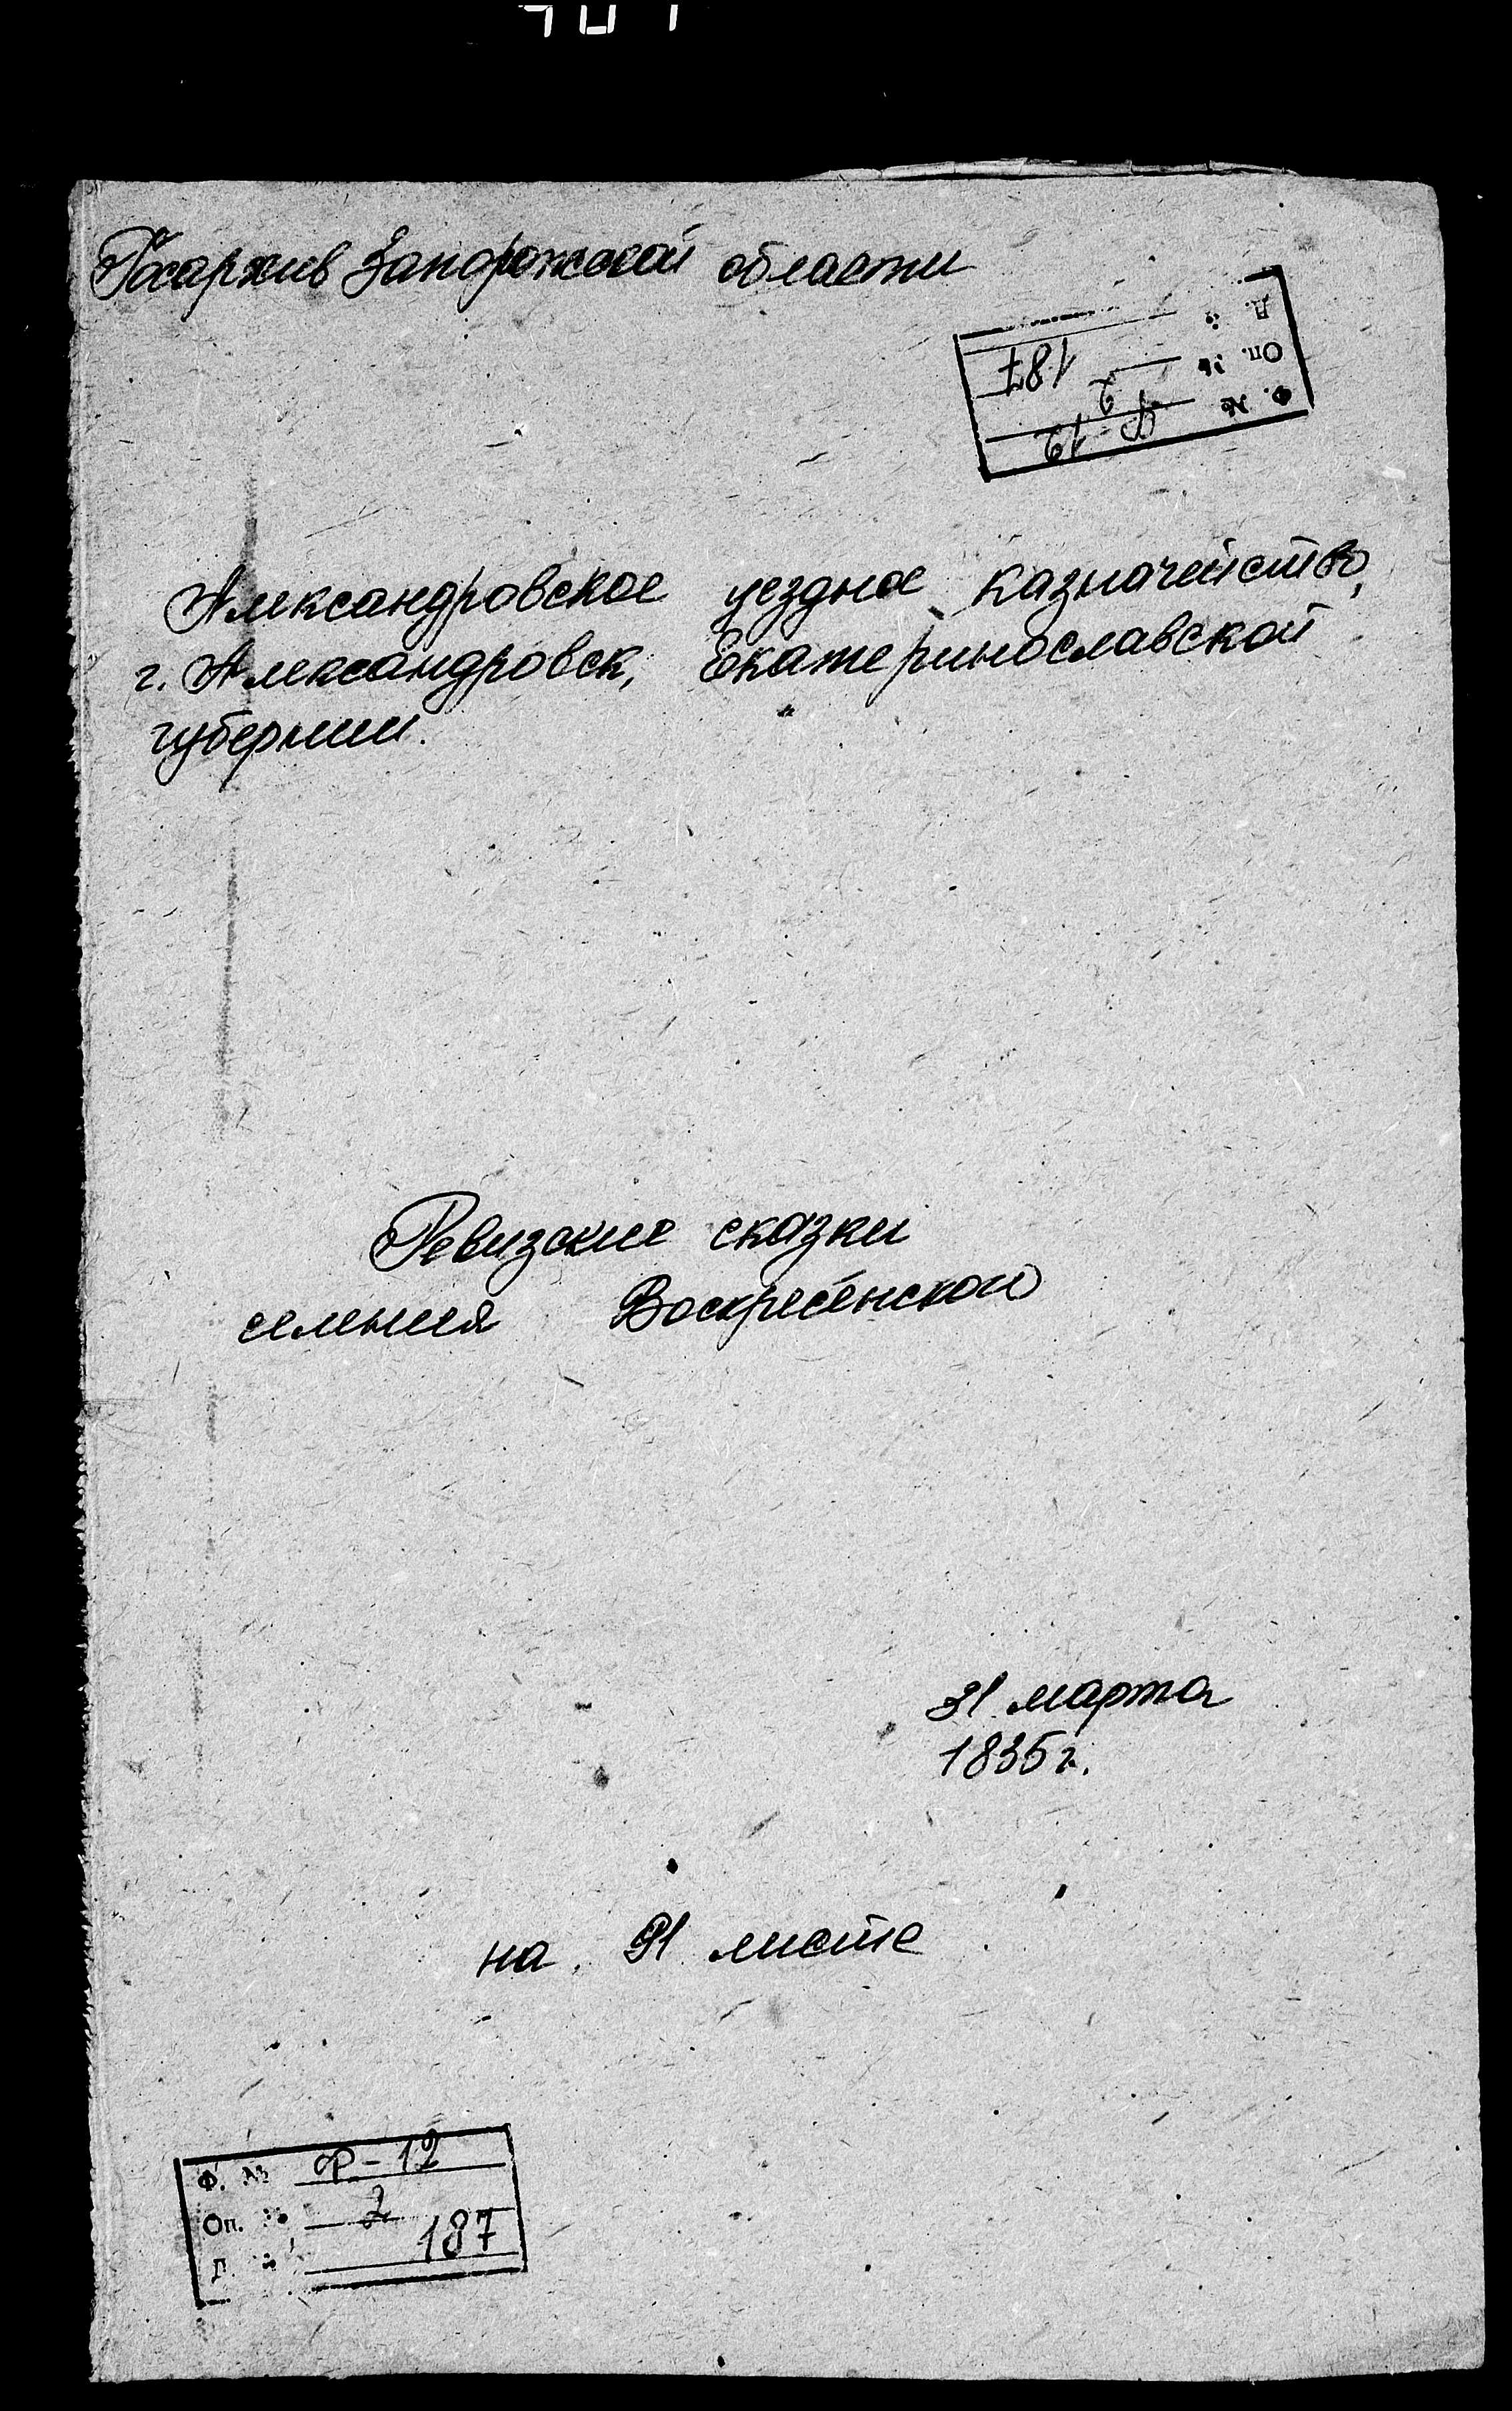 Госархив Запорожской области
Ф. № Ф-12
Оп. № 2
Д. № 187
Александровское уездное казначейство,
г. Александровск, Екатеринославской
губернии.
Ревизские сказки
селения Воскресенской
31 марта
1835 г.
на 91 листе
Ф. № Ф-12
Оп. № 2
Д. № 187